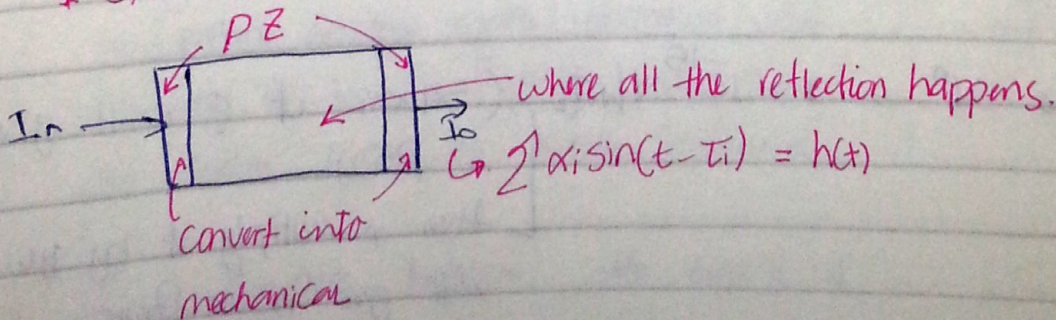 PZ
where all the reflection happens.
In
Io
↳ Σ αi sin(t-τi) = h(t)
convert into
mechanical